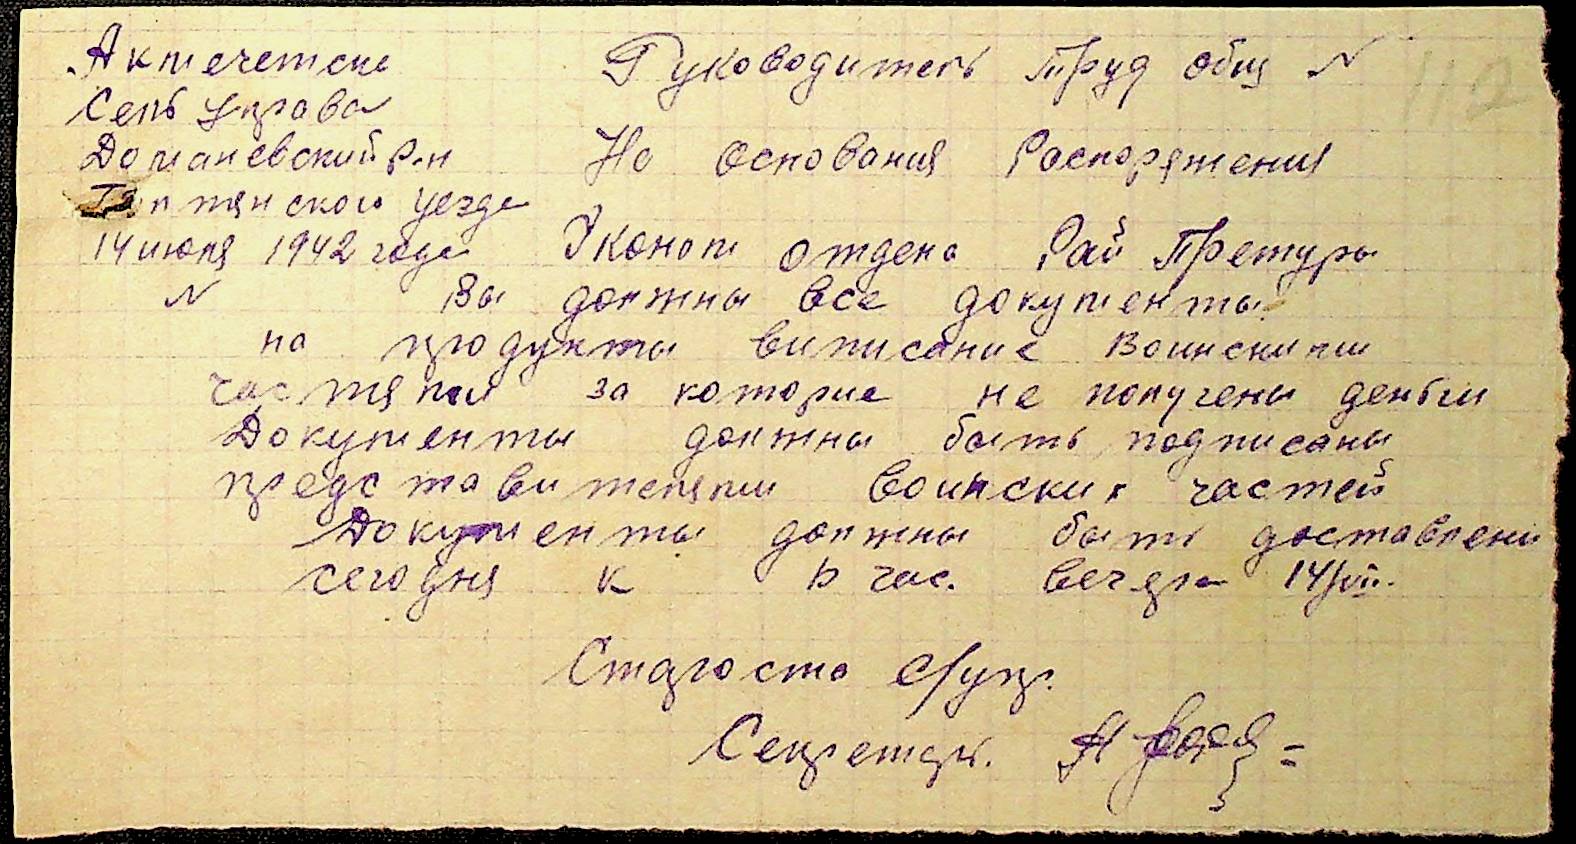 Актечетске
Сель управа
Доманевский р-н
Голтянского уезда
14 июля 1942 года
N
Руководитель труд общ N
На основания Распоряжения
Эконом отдела Рай Претуры
Вы должны все документы
на продукты виписание воинскими
частями за которие не получены деньги
Документы должны быть подписаны
представителями воинских частей
Документы должны быть доставлени
сегодня к час. вечера 14/VII.
Староста с/упр.
Секретарь.